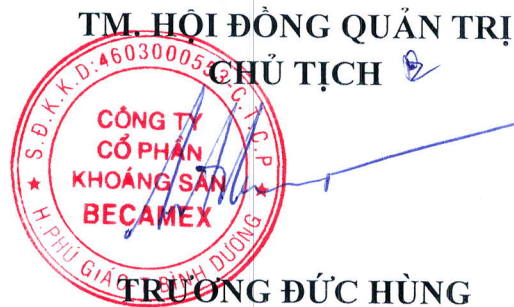 TM. HỘI ĐỒNG QUẢN TRỊ
CHỦ TỊCH
S.Đ.K.K.D:4603000553-C.T.C.P
CÔNG TY
CỔ PHẦN
KHOÁNG SẢN
BECAMEX
H.PHÚ GIÁO-T.BÌNH DƯƠNG
TRƯƠNG ĐỨC HÙNG